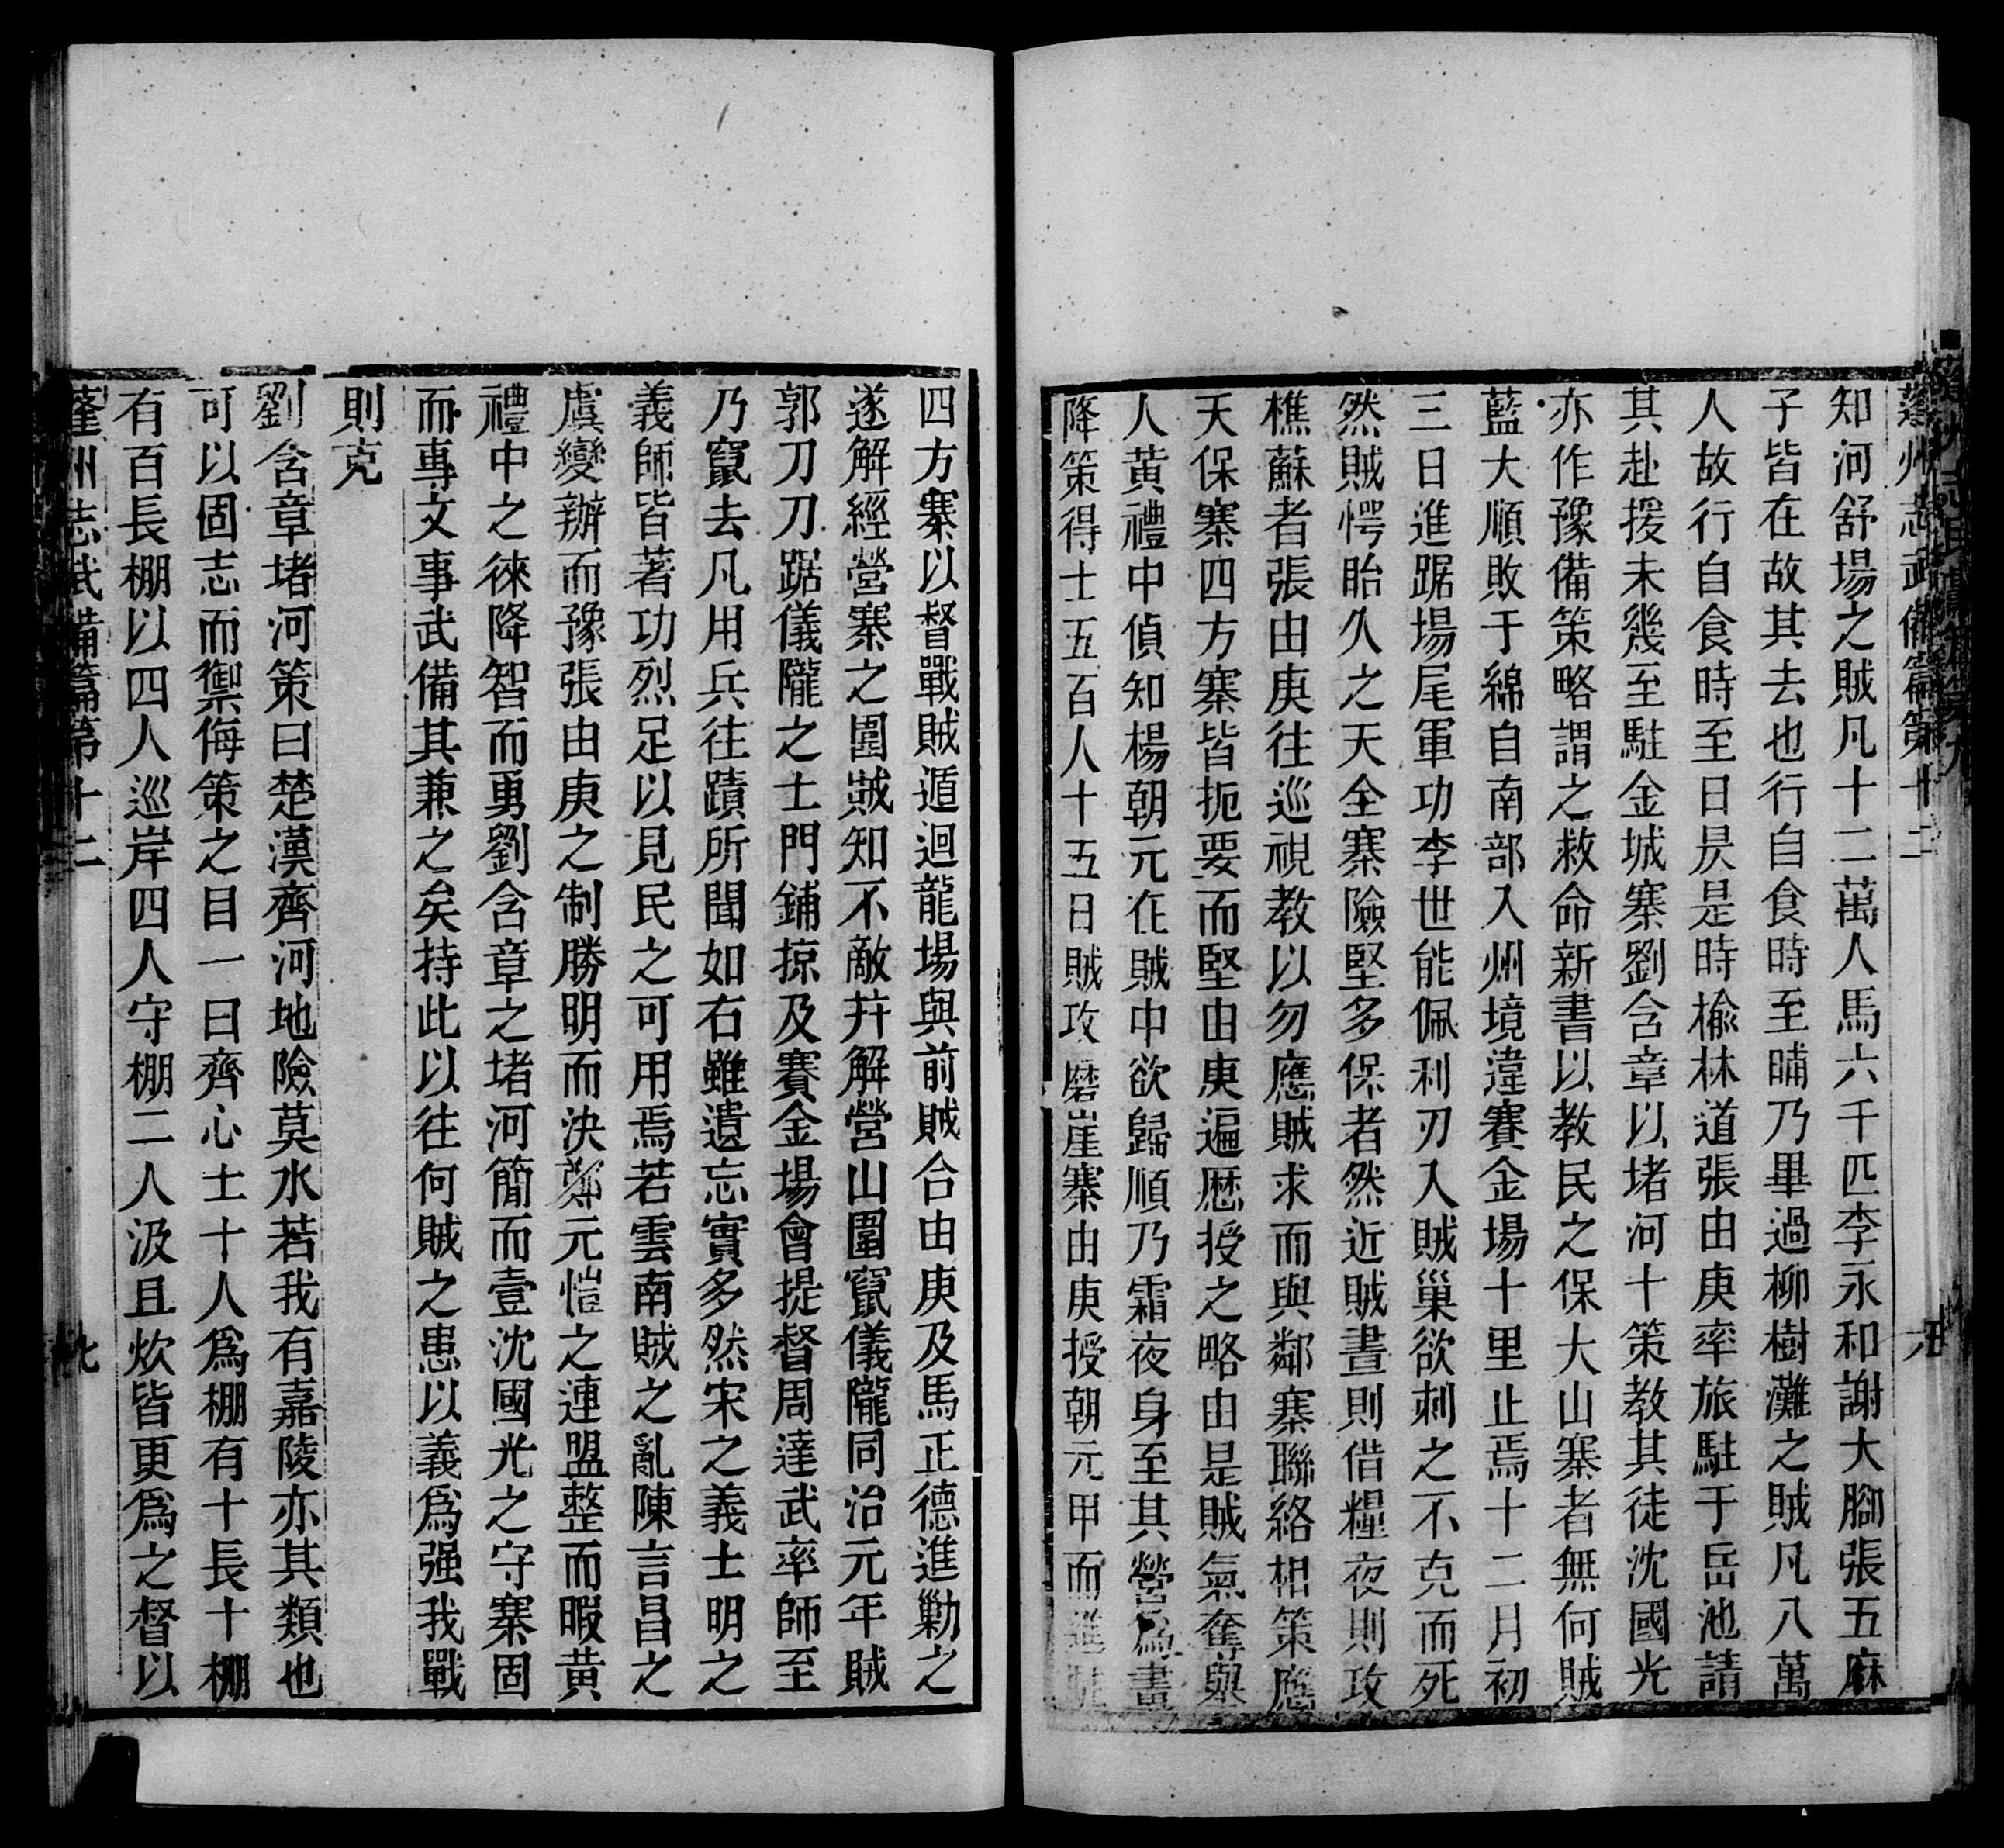 蓬州志武備篇第十二
知河舒場之賊凡十二萬人馬六千匹李永和謝大腳張五麻
子皆在故其去也行自食時至晡乃畢過柳樹灘之賊凡八萬
人故行自食時至日昃是時榆林道張由庚率旅駐于岳池請
其赴援未幾至駐金城寨劉含章以堵河十策教其徒沈國光
亦作豫備策略謂之救命新書以教民之保大山寨者無何賊
藍大順敗于綿自南部入州境違賽金場十里止焉十二月初
三日進踞場尾軍功李世能佩利刃入賊巢欲刺之不克而死
然賊愕眙久之天全寨險堅多保者然近賊晝則借糧夜則攻
樵蘇者張由庚往巡視教以勿應賊求而與鄰寨聯絡相策應
天保寨四方寨皆扼要而堅由庚遍歷授之略由是賊氣奪與
人黃禮中偵知楊朝元在賊中欲歸順乃霜夜身至其營爲畫
降策得士五百人十五日賊攻磨崖寨由庚授朝元甲而進
四方寨以督戰賊遁迴龍場與前賊合由庚及馬正德進勦之
遂解經營寨之圍賊知不敵幷解營山圍竄儀隴同治元年賊
郭刀刀踞儀隴之士門鋪掠及賽金場會提督周達武率師至
乃竄去凡用兵往蹟所聞如右雖遺忘實多然宋之義士明之
義師皆著功烈足以見民之可用焉若雲南賊之亂陳言昌之
虞變辦而豫張由庚之制勝明而決鄭元愷之連盟整而暇黃
禮中之徠降智而勇劉含章之堵河簡而壹沈國光之守寨固
而專文事武備其兼之矣持此以往何賊之患以義爲强我戰
則克
劉含章堵河策曰楚漢齊河地險莫水若我有嘉陵亦其類也
可以固志而禦侮策之目一曰齊心士十人爲棚有十長十棚
有百長棚以四人巡岸四人守棚二人汲且炊皆更爲之督以
蓬州志武備篇第十二